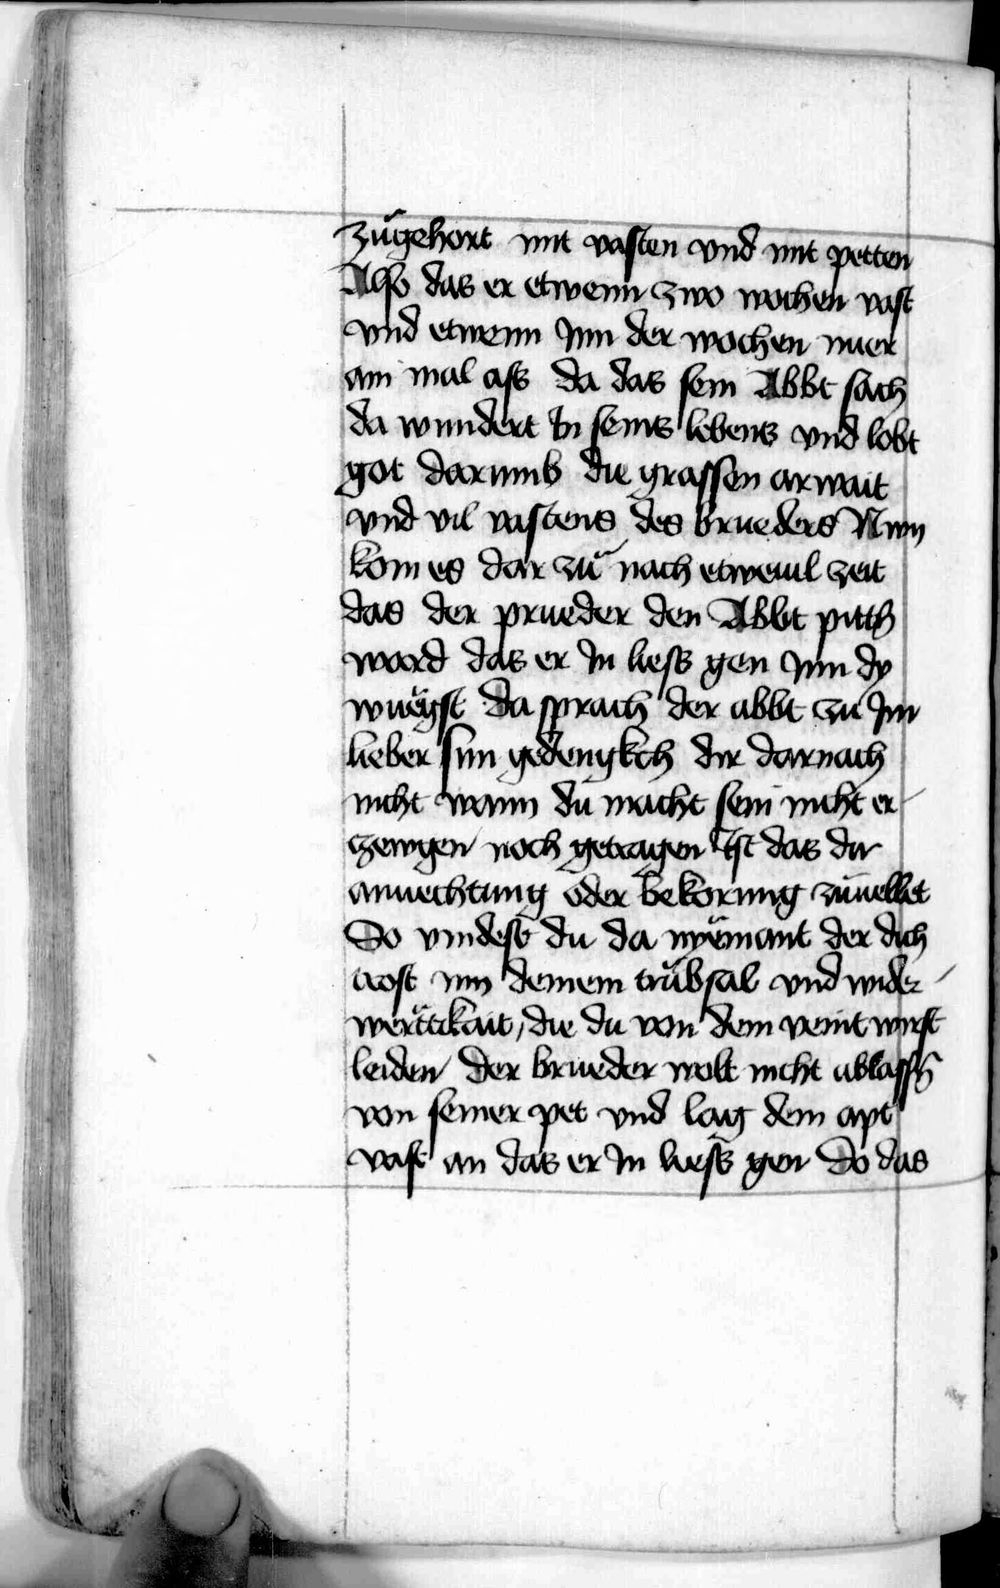 zůgehort mit vasten vnd mit petten
Also das er etwenn zwo wochen vast
vnd etwenn Inn der wochen nuer
ain mal ass da das sein Abbt sach
da wundert In seins lebens vnd lobt
got darumb die grassen arwait
vnd vil vastens des brueders Nwn
kom es dar zů nach etweuil zeit
das der prueder den Abbt pitth
ward das er In liess gen Inn dy
wuęyst da sprach der abbt zu Im
lieber sun gedengkch dir darnach
nicht wann du macht sein nicht er-
zewgen noch getragen Ist das dir
anuechtung oder bekorung zůuellet
So vindest du da nyemant der dich
trost inn deinem trůbsal vnd wider-
wërtikait, die du von dem veint wirst
leiden der brueder wolt nicht ablassn̄
von seiner pet vnd lag dem apt
vast an das er In liess gen Do das